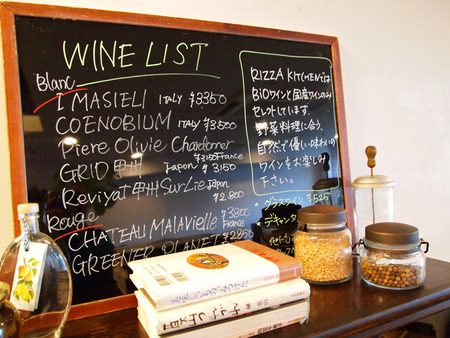 WINE LIST
Blanc
I MASIELI ITALY ¥3350
COENOBIUM ITALY
Piere Olivie Chardonner
¥3150 France
GRID 甲州 Japan ¥3150
Reviyat 甲州 Sur Lie Japan
¥2800
Rouge
CHATEAU MALAVIELLE ¥3800
France
GREENER PLANET ¥2850
RIZZA KITCHENでは
BIOワインと国産ワインのみ
セレクトしています。
野菜料理に合う、
自然で優しい味わいの
ワインをお楽しみ
下さい。
グラスワイン ¥525
デキャンタ